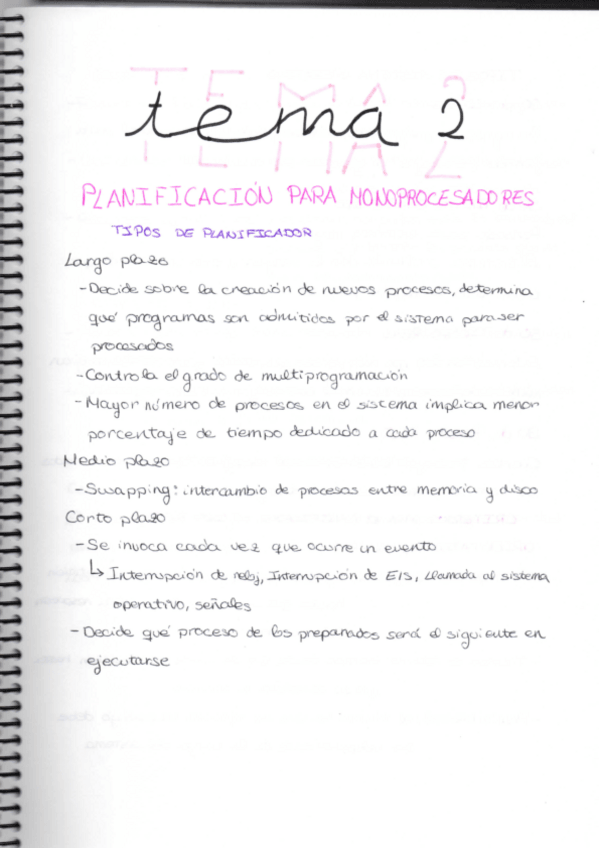 TEMA 2
tema 2
PLANIFICACIÓN PARA MONOPROCESADORES
TIPOS DE PLANIFICADOR
Largo plazo
-Decide sobre la creación de nuevos procesos, determina
qué programas son admitidos por el sistema para ser
procesados
-Controla el grado de multiprogramación
-Mayor número de procesos en el sistema implica menor
porcentaje de tiempo dedicado a cada proceso
Medio plazo
-Swapping: intercambio de procesos entre memoria y disco
Corto plazo
-Se invoca cada vez que ocurre un evento
↳ Interrupción de reloj, Interrupción de E/S, llamada al sistema
operativo, señales
-Decide qué proceso de los preparados será el siguiente en
ejecutarse